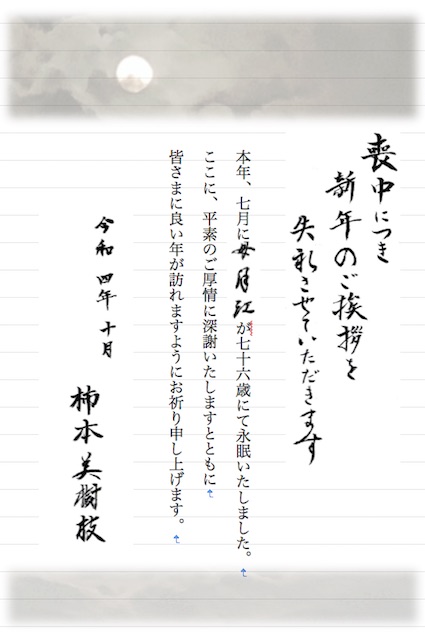 喪中につき
新年のご挨拶を
失礼させていただきます
本年、七月に母月江が七十六歳にて永眠いたしました。
ここに、平素のご厚情に深謝いたしますとともに
皆さまに良い年が訪れますようにお祈り申し上げます。
令和四年十月
柿本美樹枝